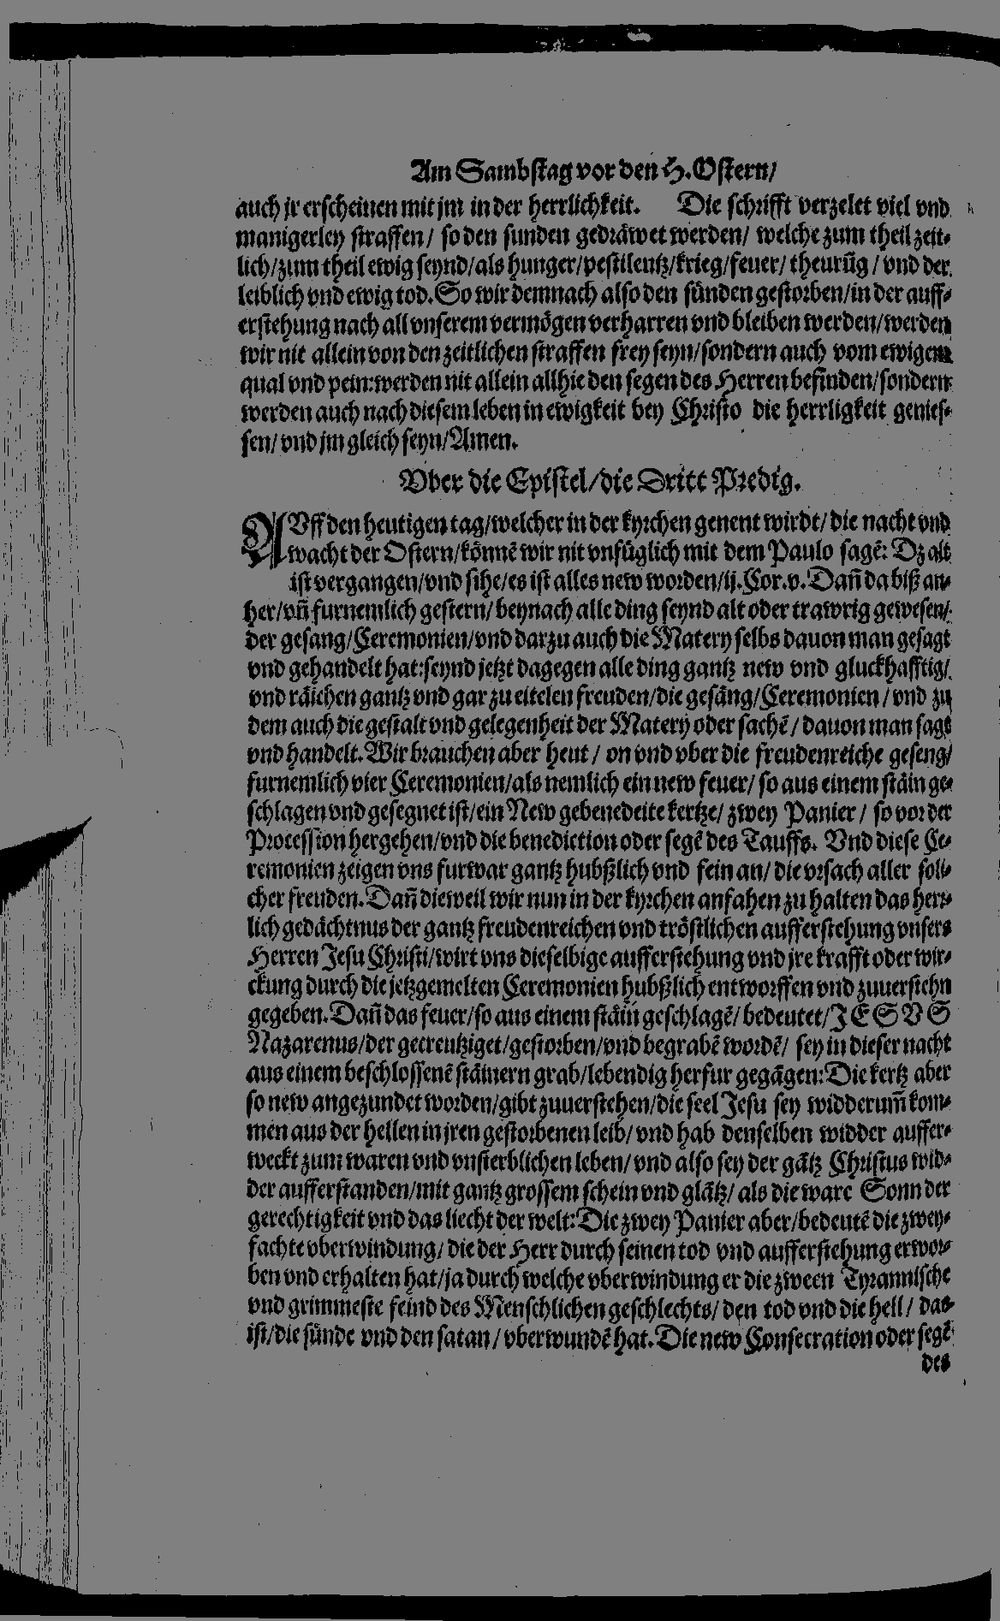 Am Sambstag vor den H. Ostern/
auch jr erscheinen mit jm in der herrlichkeit. Die schrifft verzelet viel vnd
manigerley straffen/ so den sunden gedräwet werden/ welche zum theil zeit-
lich/zum theil ewig seynd/als hunger/pestilentz/krieg/feuer/ theurũg/ vnd der
leiblich vnd ewig tod. So wir demnach also den sünden gestorben/in der auff-
erstehung nach all vnserem vermögen verharren vnd bleiben werden/werden
wir nit allein von den zeitlichen straffen frey seyn/sondern auch vom ewigem
qual vnd pein:werden nit allein allhie den segen des Herren befinden/sondern
werden auch nach diesem leben in ewigkeit bey Christo die herrligkeit genies-
sen/ vnd jm gleich seyn/Amen.
Vber die Epistel/die Dritt Predig.
AVff den heutigen tag/welcher in der kyrchen genent wirdt/ die nacht vnd
wacht der Ostern/könnẽ wir nit vnfüglich mit dem Paulo sagẽ: Dz alt
ist vergangen/vnd sihe/es ist alles new worden/ij.Cor.v. Dañ da biß an-
her/vñ furnemlich gestern/ beynach alle ding seynd alt oder trawrig gewesen/
der gesang/Ceremonien/vnd darzu auch die Matery selbs dauon man gesagt
vnd gehandelt hat:seynd jetzt dagegen alle ding gantz new vnd gluckhafftig/
vnd räichen gantz vnd gar zu eitelen freuden/die gesäng/Ceremonien/ vnd zu
dem auch die gestalt vnd gelegenheit der Matery oder sachẽ/ dauon man sagt
vnd handelt. Wir brauchen aber heut/ on vnd vber die freudenreiche geseng/
furnemlich vier Ceremonien/als nemlich ein new feuer/ so aus einem stäin ge-
schlagen vnd gesegnet ist/ein New gebenedeite kertze/ zwey Panier/ so vor der
Procession hergehen/vnd die benediction oder segẽ des Tauffs. Vnd diese Ce-
remonien zeigen vns furwar gantz hubßlich vnd fein an/ die vrsach aller soli-
cher freuden. Dañ dieweil wir nun in der kyrchen anfahen zu halten das herr-
lich gedächtnus der gantz freudenreichen vnd tröstlichen aufferstehung vnsers
Herren Jesu Christi/wirt vns dieselbige aufferstehung vnd jre krafft oder wir-
ckung durch die jetzgemelten Ceremonien hubßlich entworffen vnd zuuerstehn
gegeben. Dañ das feuer/so aus einem stäin geschlagẽ/ bedeutet/JESVS
Nazarenus/der gecreutziget/gestorben/vnd begrabẽ wordẽ/ sey in dieser nacht
aus einem beschlossenẽ stäinern grab/lebendig herfur gegãgen: Die kertz aber
so new angezundet worden/gibt zuuerstehen/die seel Jesu sey widderum̃ kom-
men aus der hellen in jren gestorbenen leib/ vnd hab denselben widder auffer-
weckt zum waren vnd vnsterblichen leben/ vnd also sey der gãtz Christus wid-
der aufferstanden/mit gantz grossem schein vnd glãtz/ als die ware Sonn der
gerechtigkeit vnd das liecht der welt: Die zwey Panier aber/bedeutẽ die zwey-
fachte vberwindung/ die der Herr durch seinen tod vnd aufferstehung erwor-
ben vnd erhalten hat/ja durch welche vberwindung er die zween Tyrannische
vnd grimmeste feind des Menschlichen geschlechts/ den tod vnd die hell/ das
ist/die sünde vnd den satan/ vberwundẽ hat. Die new Consecration oder segẽ
des